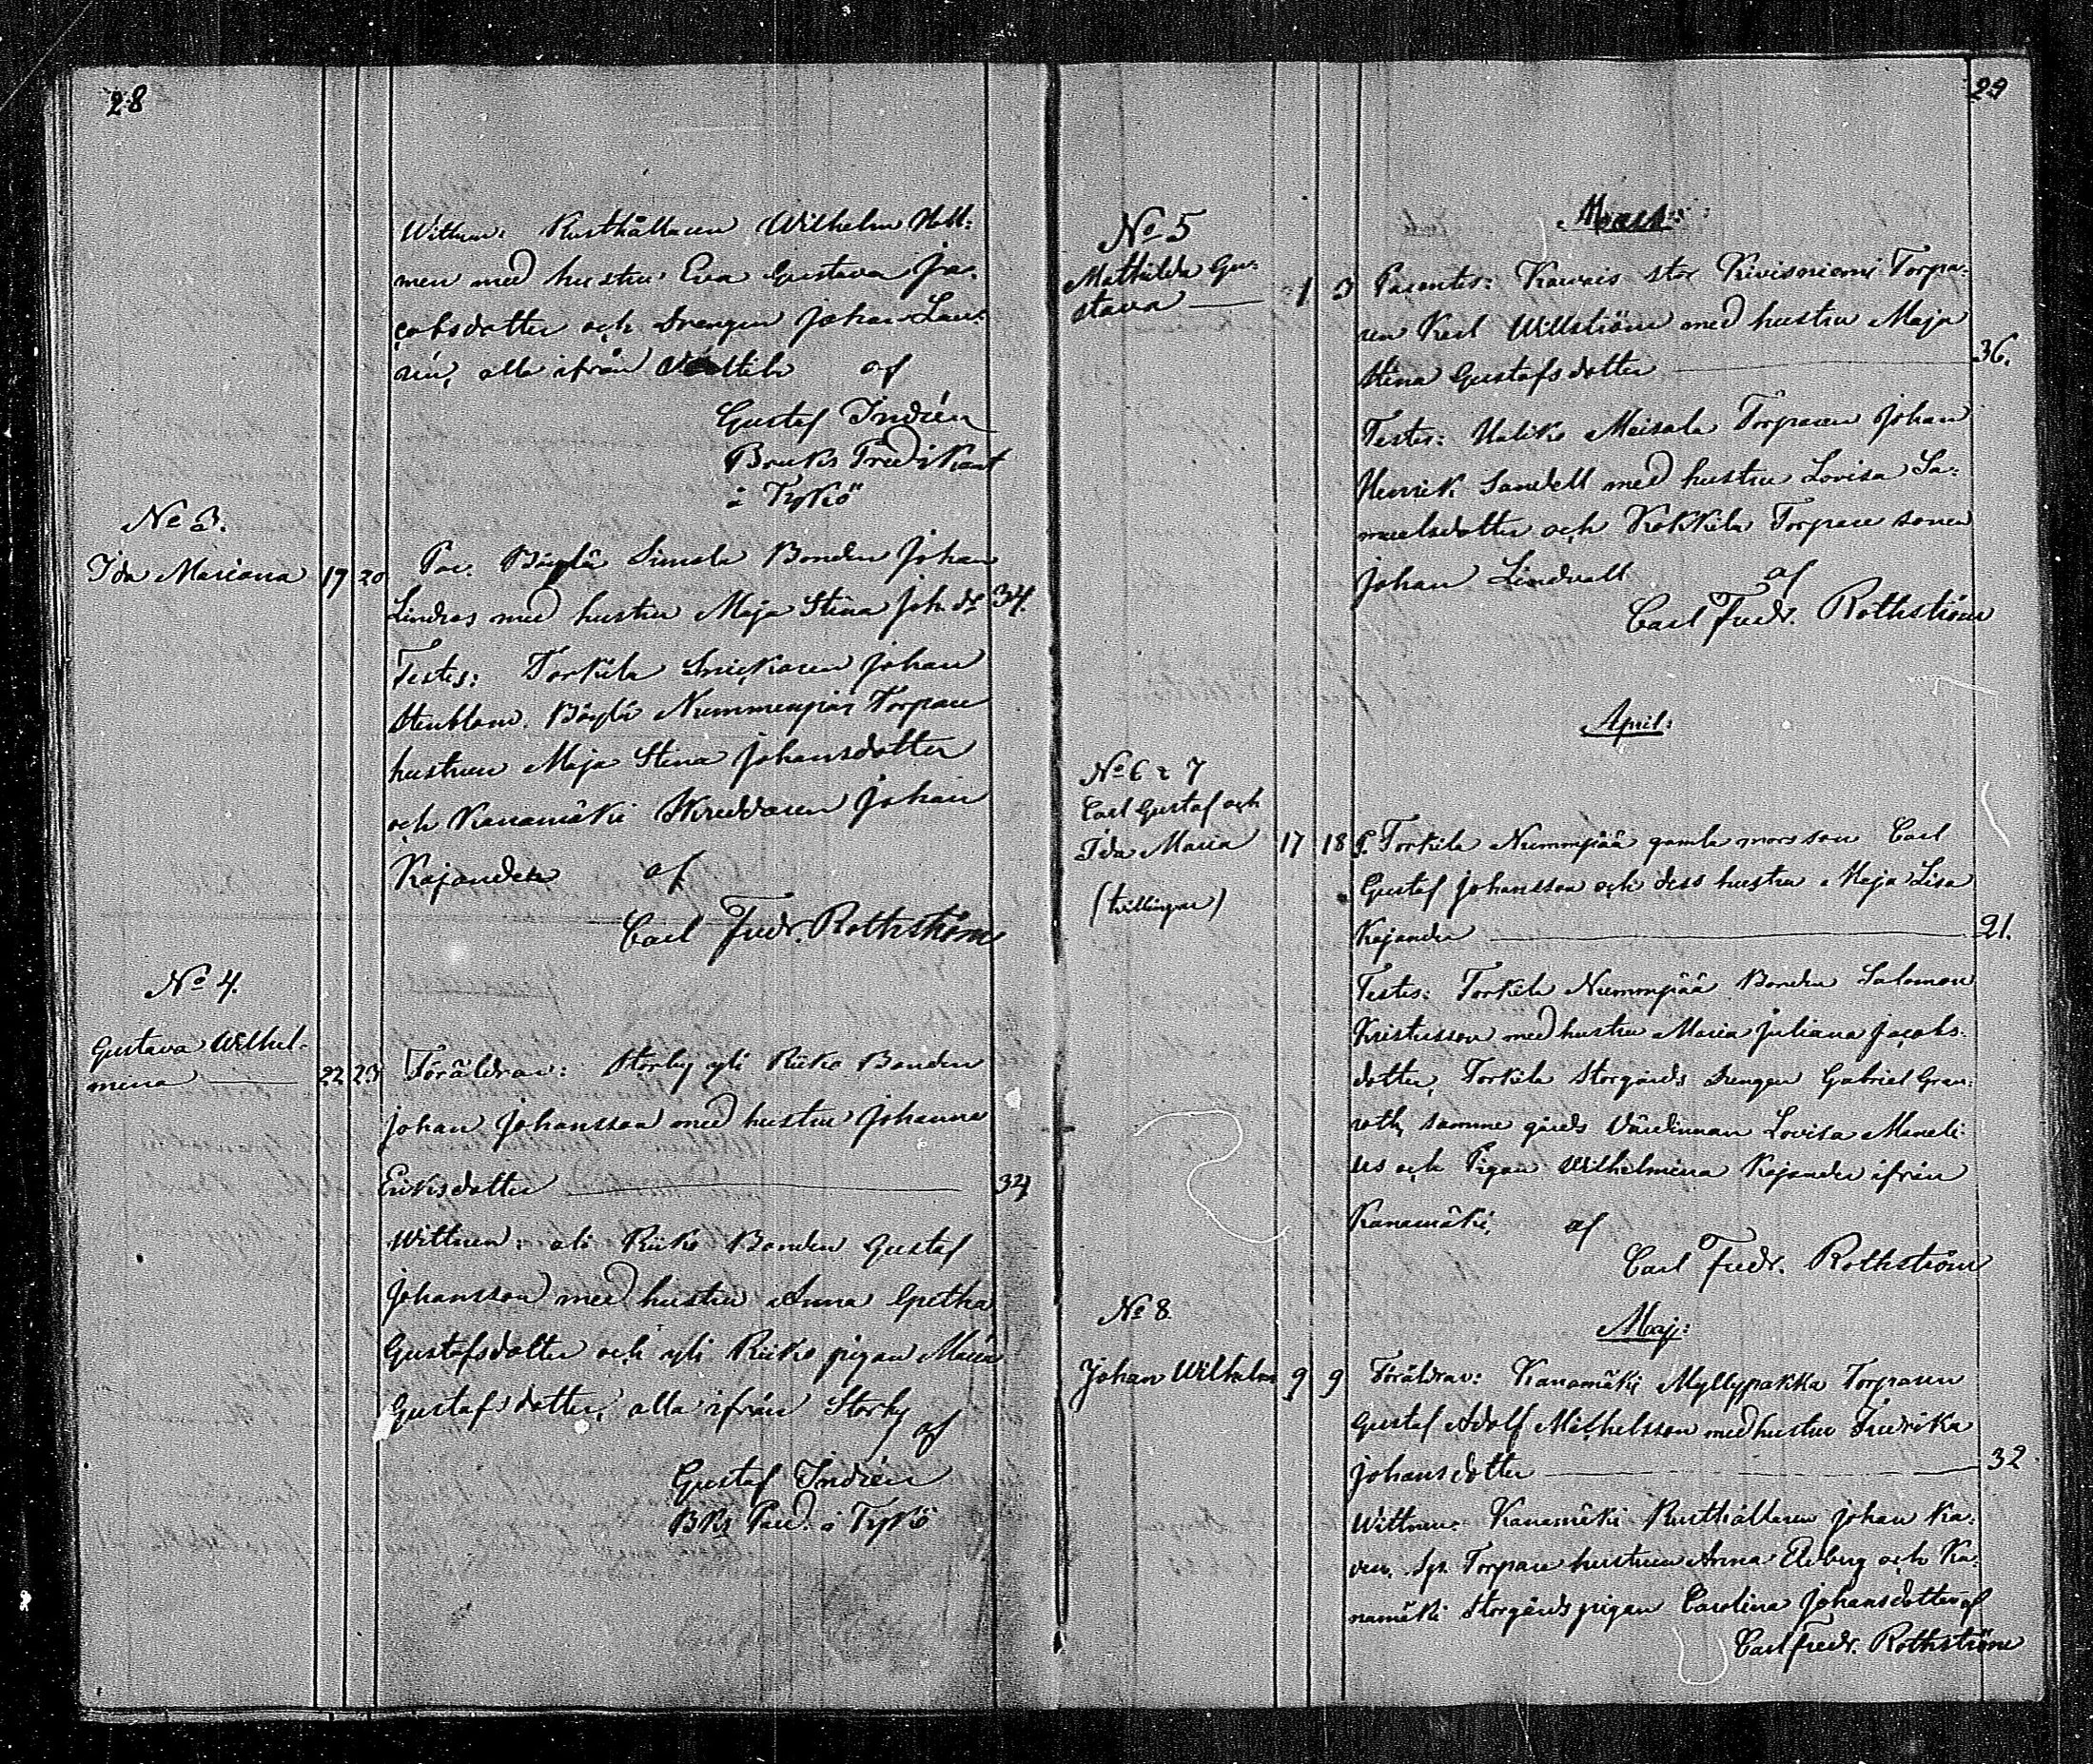 28
Wittnen: Rusthållaren Wilhelm Hell:
men med hustru Eva Gustava Ja:
cobsdotter och Drengen Johan Lau:
rén, alla ifrån af
Gustaf Indrén
Bruks Predikant
å Tykö
No 3.
Ida Mariana 17 20 Par. Pöylä Simola Bonden Johan
Lindros med hustru Maja Stina Joh.dr 34.
Testes: Torkila Snickaren Johan
Stenblom. Pöylä Nummenpää Torpare
hustrun Maja Stina Johansdotter
och Kanamäki Skreddaren Johan
Kajander af
Carl Fredr. Rothström
No 4.
Gustava Wilhel-
mina 22 23 Föräldrar: Storby yli Riiko Bonden
Johan Johansson med hustru Johanna
Eriksdotter 34
Wittnen: ali Riiko Bonden Gustaf
Johansson med hustru Anna Gretha
Gustafsdotter och yli Riiko pigan Maria
Gustafsdotter, alla ifrån Storby
af
Gustaf Indrén
Bks Pred. å Tykö
29
Mars:
No 5
Mathilda Gu:
stava 1 3 Parentes: stor Kivisniemi Torpa:
ren Karl Willström med hustru Maja
Stina Gustafsdotter 36.
Testes: Haliko Meisala Torparen Johan
Henrik Sandell med hustru Lovisa Sa:
muelsdotter och Kokkila Torpare sonen
Johan Lindvall af
Carl Fredr. Rothström
April:
No 6 & 7
Carl Gustaf och
Ida Maria 17 18 P. Torkila Nummipää gamla mors son Carl
(tvillingar)
Gustaf Johansson och dess hustru Maja Lisa
Kajander 21.
Testes: Torkila Nummipää Bonden Salomon
Kristersson med hustru Maria Juliana Jacobs:
dotter, Torkila Storgårds Drengen Gabriel Gran:
roth, samme gårds Värdinnan Lovisa Mandeli:
us och Pigan Wilhelmina Kajander ifrån
Kanamäki, af
Carl Fredr. Rothström
Maj:
No 8.
Johan Wilhelm 9 9 Föräldrar: Kanamäki Myllypakka Torparen
Gustaf Adolf Michelsson med hustru Fredrika
Johansdotter 32.
Wittnen: Kanamäki Rusthållaren Johan Ka:
ven. Torpare hustrun Anna Elvberg och Ka:
namäki Storgårds pigan Carolina Johansdotter af
Carl Fredr. Rothström